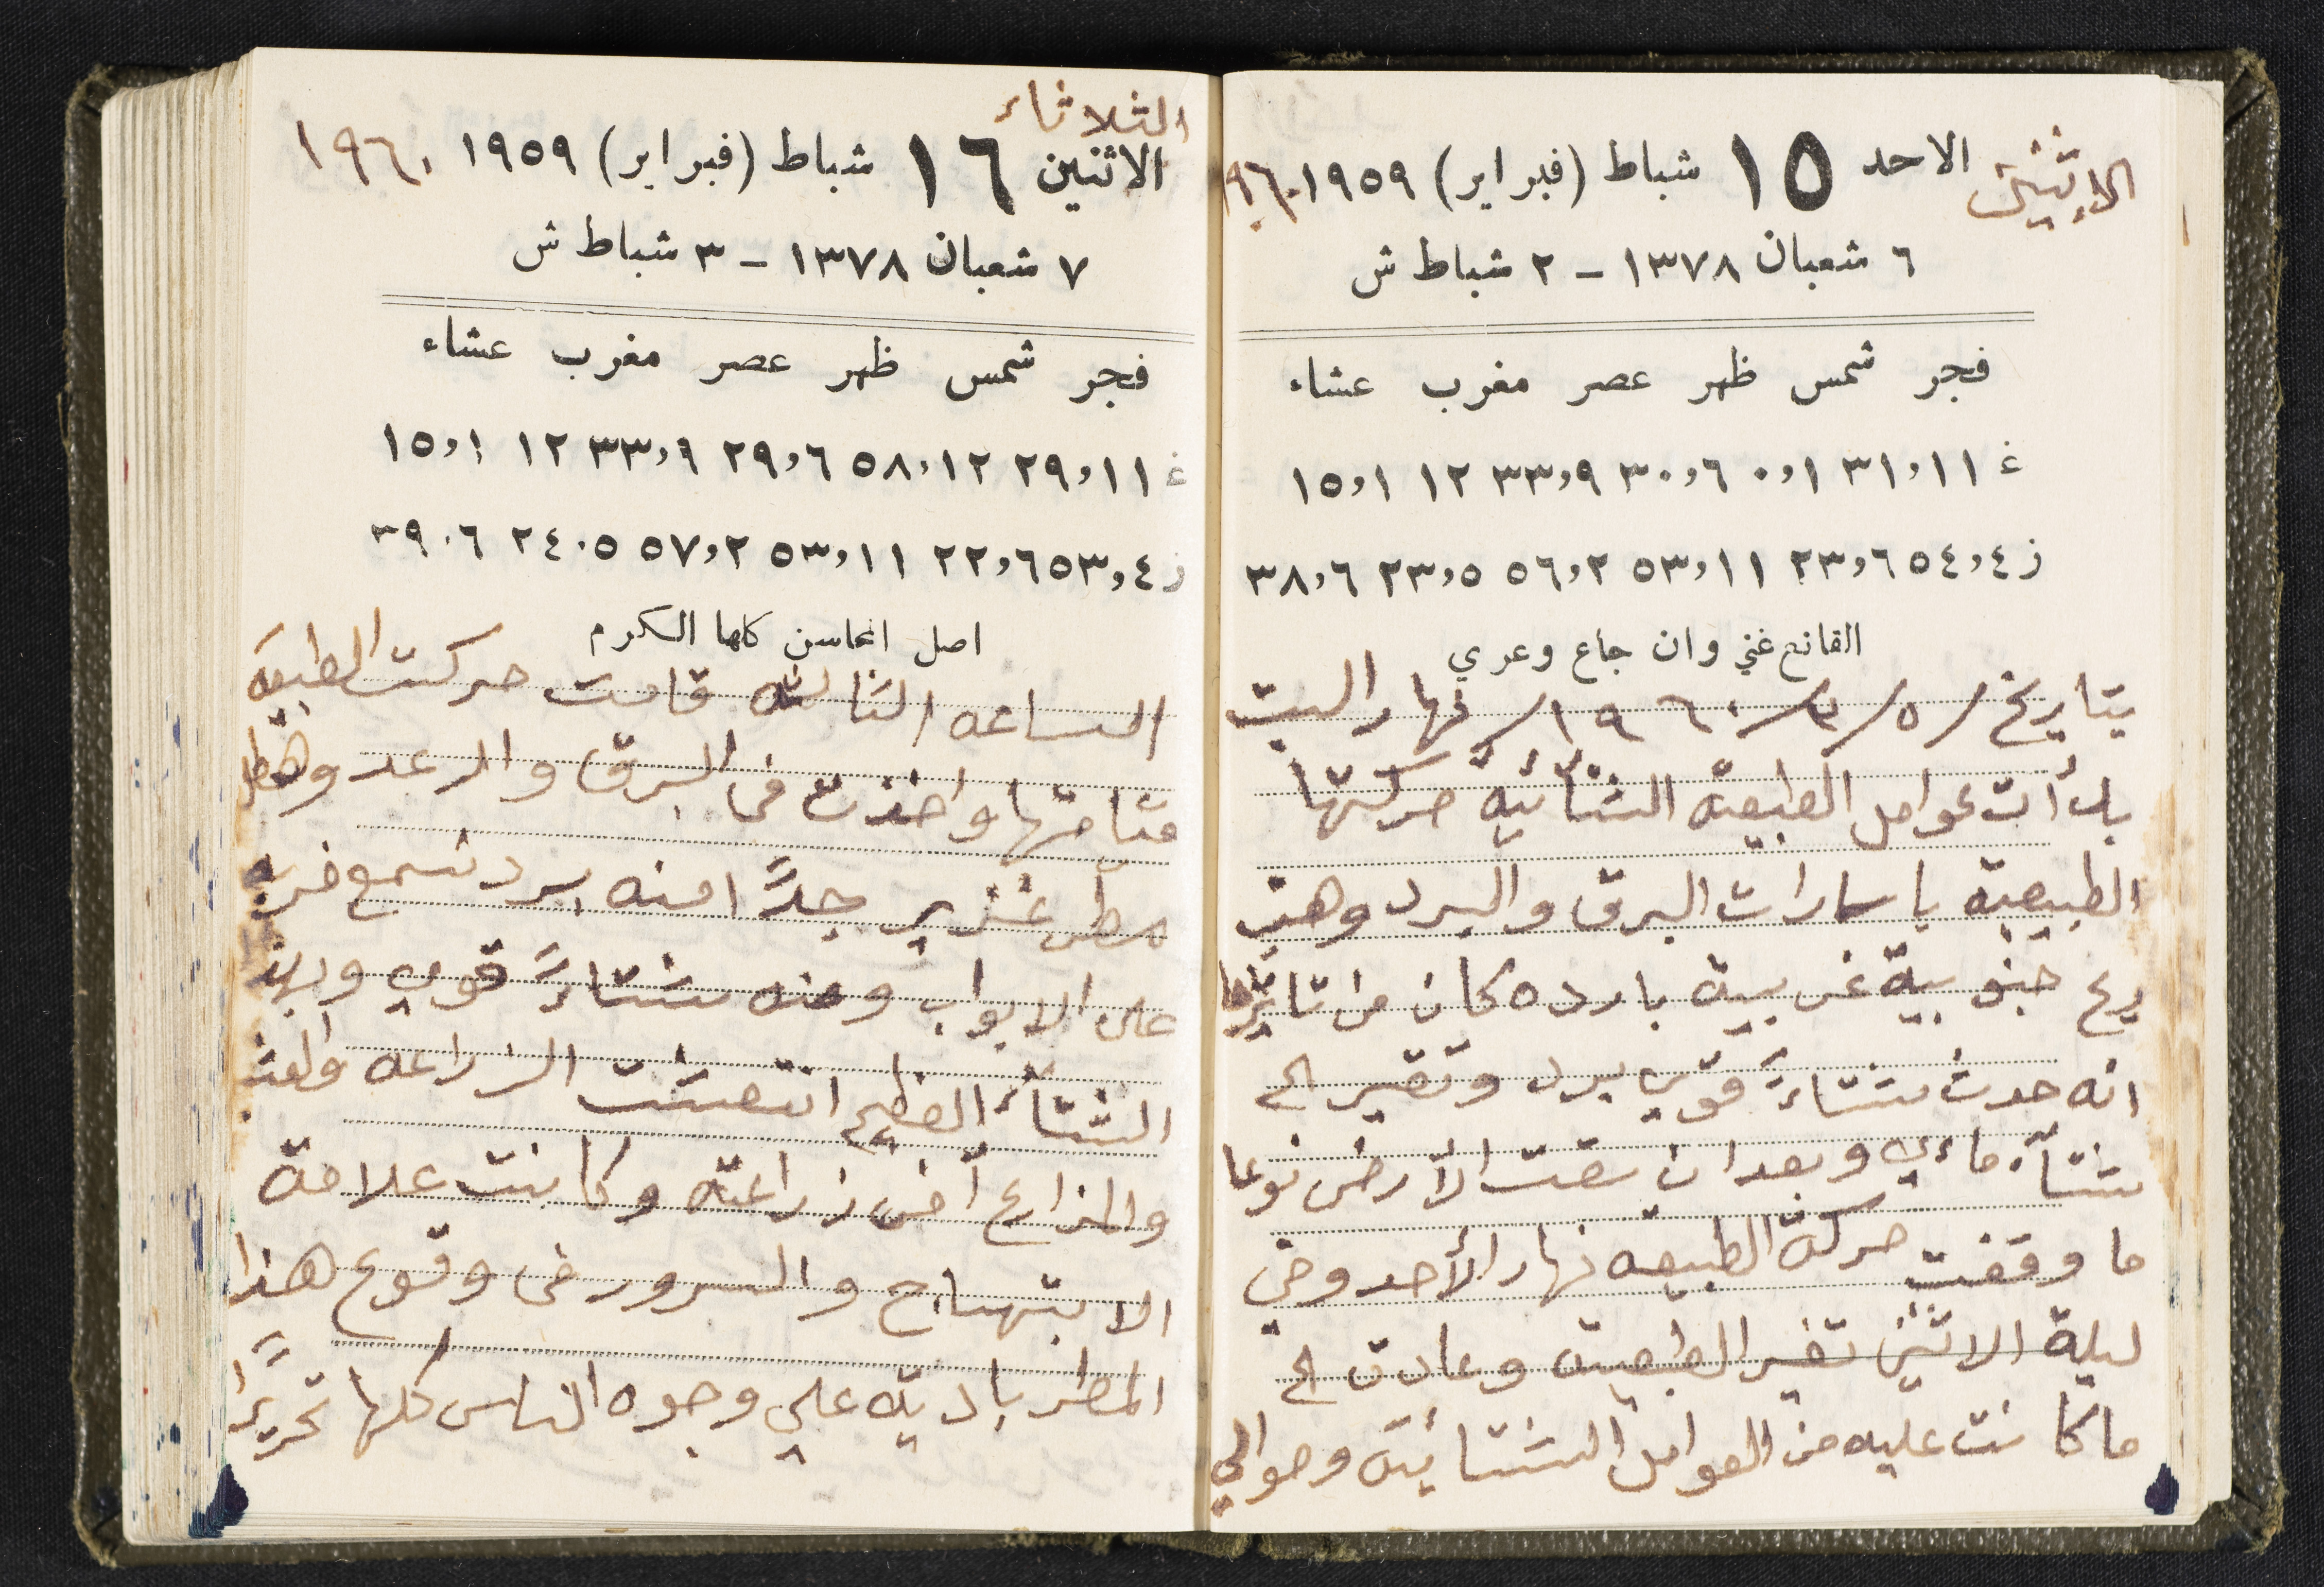 الاثنين الاحد ١٥ شباط (فبراير) ١٩٥٩ ١٩٦٠
٦ شعبان ١٣٧٨ - ٢ شباط ش
فجر شمس ظهر عصر مغرب عشاء
غ ٣١,١١ ٠,١ ٣٠,٦ ٣٣,٩ ١٢ ١٥,١
ز ٥٤,٤ ٢٣,٦ ٥٣,١١ ٥٦,٢ ٢٣,٥ ٣٨,٦
القانع غني وان جاع وعري
بتاريخ /٥/٣/١٩٦٠/ نهار السبت
بدأت عوامل الطبيعة الشتائية حركتها
الطبيعية باسارات البرق والبرد وهبت
ريح جنوبية غربية بارده كان من تاثيرها
انه حدث شتاءً قوي ببرد وتغير الى
شتآء مائي وبعد ان سقت الأرض نوعا
ما وقفت حركة الطبيعه نهار الأحد وفي
ليلة الاثنين تغير الطبيعة وعادت الى
ما كانت عليه من العوامل الشتائية وحوالي
الثلاثاء
الاثنين ١٦ شباط (فبراير) ١٩٥٩ ١٩٦٠
٧ شعبان ١٣٧٨ - ٣ شباط ش
فجر شمس ظهر عصر مغرب عشاء
غ ٢٩,١١ ٥٨,١٢ ٢٩,٦ ٣٣,٩ ١٢ ١٥,١
ز ٥٣,٤ ٢٢,٦ ٥٣,١١ ٥٧,٢ ٢٤,٥ ٣٩,٦
اصل المحاسن كلها الكرم
الساعه الثالثه قامت حركت الطبيعة
قتامتها واخذت في البرق والرعد وهطل
مطر غزير جداً امنه برد نسمع ضربه
على الابواب ومنه شتاءً قوي وبهذ
الشتآء العظيم انتعشت الزراعه والعشب
والمزارع أفى زراعته وكانت علامة
الابتهاج والسرور في وقوع هذا
المطر باديه على وجوه الناس كلها تحريراً